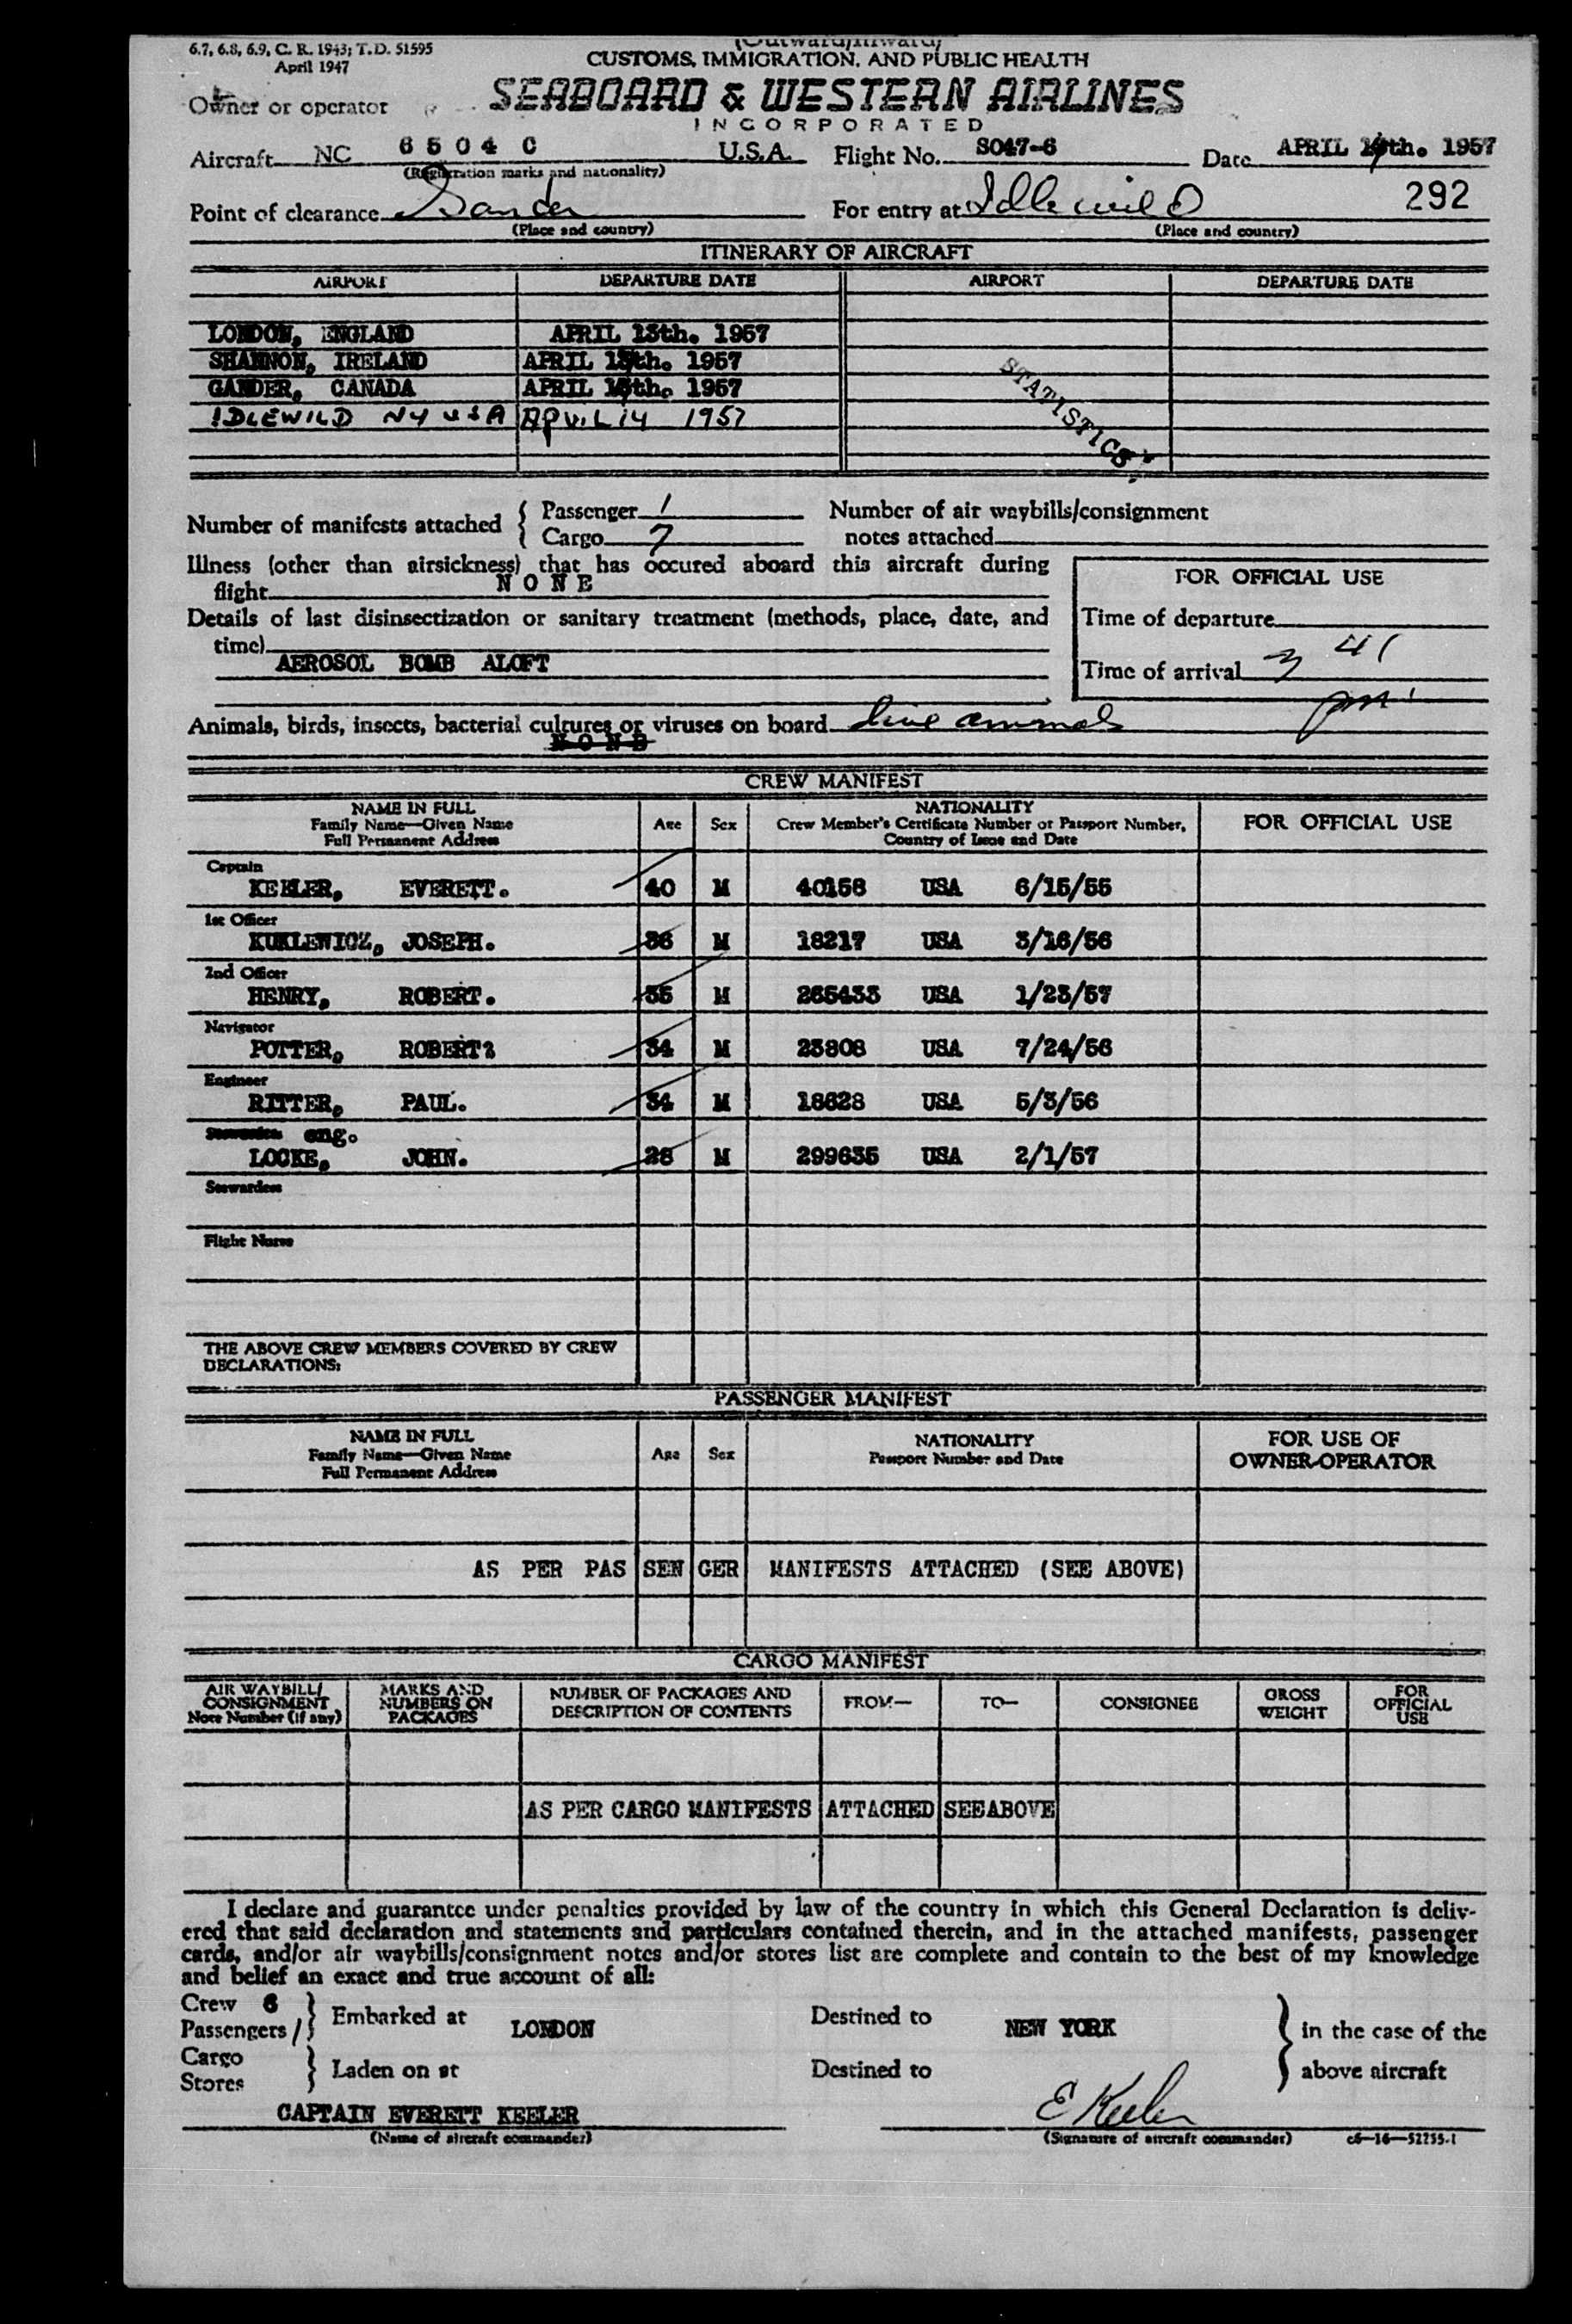 6.7, 6.8, 6.9, C. R. 1943; T.D. 51595
April 1947
(Outward/Inward)
CUSTOMS, IMMIGRATION, AND PUBLIC HEALTH
Owner or operator SEABOARD & WESTERN AIRLINES
INCORPORATED
Aircraft NC 6504 C U.S.A. Flight No. S047-6 Date APRIL 14th. 1957
(Registration marks and nationality)
Point of clearance Gander For entry at Idlewild 292
(Place and country) (Place and country)
ITINERARY OF AIRCRAFT
AIRPORT DEPARTURE DATE AIRPORT DEPARTURE DATE
LONDON, ENGLAND APRIL 13th. 1957
SHANNON, IRELAND APRIL th. 1957
GANDER, CANADA APRIL th. 1957
IDLEWILD NY USA APRIL 14 1957
STATISTICS
Number of manifests attached { Passenger 1 Number of air waybills/consignment
Cargo 7 notes attached
Illness (other than airsickness) that has occured aboard this aircraft during
flight N O N E
FOR OFFICIAL USE
Details of last disinsectization or sanitary treatment (methods, place, date, and
time)
AEROSOL BOMB ALOFT
Time of departure
Time of arrival 3 41
pm
Animals, birds, insects, bacterial cultures or viruses on board live animals
N O N E
CREW MANIFEST
NAME IN FULL Age Sex NATIONALITY FOR OFFICIAL USE
Family Name—Given Name Crew Member's Certificate Number or Passport Number,
Full Permanent Address Country of Issue and Date
Captain
KEELER, EVERETT. 40 M 40158 USA 6/15/55
1st Officer
KUKLEWICZ, JOSEPH. 36 M 18217 USA 3/16/56
2nd Officer
HENRY, ROBERT. 35 M 265433 USA 1/23/57
Navigator
POTTER, ROBERT 34 M 23808 USA 7/24/56
Engineer
RITTER, PAUL. 34 M 18628 USA 5/3/56
eng.
LOCKE, JOHN. 28 M 299635 USA 2/1/57
Stewardess
Flight Nurse
THE ABOVE CREW MEMBERS COVERED BY CREW
DECLARATIONS:
PASSENGER MANIFEST
NAME IN FULL Age Sex NATIONALITY FOR USE OF
Family Name—Given Name Passport Number and Date OWNER-OPERATOR
Full Permanent Address
AS PER PAS SEN GER MANIFESTS ATTACHED (SEE ABOVE)
CARGO MANIFEST
AIR WAYBILL/ MARKS AND NUMBER OF PACKAGES AND FROM— TO— CONSIGNEE GROSS FOR
CONSIGNMENT NUMBERS ON DESCRIPTION OF CONTENTS WEIGHT OFFICIAL
Note Number (if any) PACKAGES USE
AS PER CARGO MANIFESTS ATTACHED SEEABOVE
I declare and guarantee under penalties provided by law of the country in which this General Declaration is deliv-
ered that said declaration and statements and particulars contained therein, and in the attached manifests, passenger
cards, and/or air waybills/consignment notes and/or stores list are complete and contain to the best of my knowledge
and belief an exact and true account of all:
Crew 6 } Embarked at LONDON Destined to NEW YORK } in the case of the
Passengers 1
Cargo } Laden on at Destined to above aircraft
Stores
CAPTAIN EVERETT KEELER E Keeler
(Name of aircraft commander) (Signature of aircraft commander) c6—16—52255-1